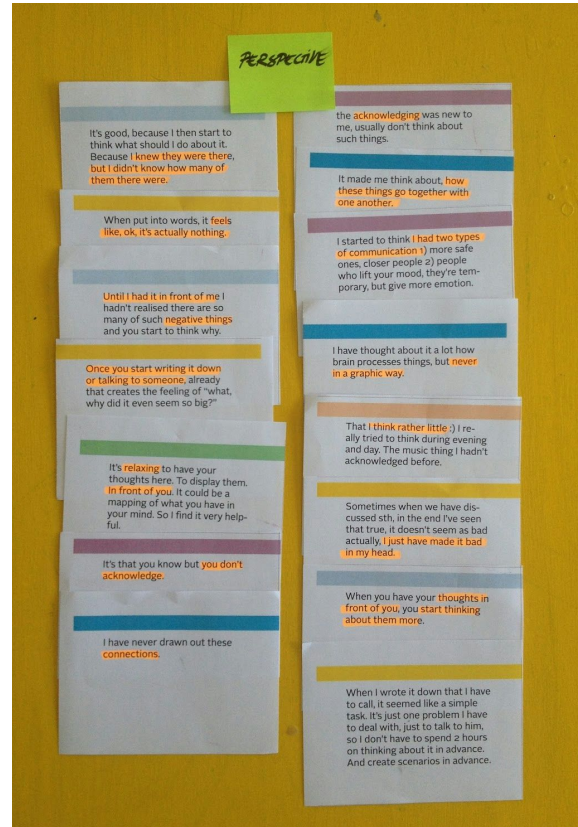 PERSPECTIVE
It's good, because I then start to
think what should I do about it.
Because I knew they were there,
but I didn't know how many of
them there were.
When put into words, it feels
like, ok, it's actually nothing.
Until I had it in front of me I
hadn't realised there are so
many of such negative things
and you start to think why.
Once you start writing it down
or talking to someone, already
that creates the feeling of "what,
why did it even seem so big?"
It's relaxing to have your
thoughts here. To display them.
In front of you. It could be a
mapping of what you have in
your mind. So I find it very help-
ful.
It's that you know but you don't
acknowledge.
I have never drawn out these
connections.
the acknowledging was new to
me, usually don't think about
such things.
It made me think about, how
these things go together with
one another.
I started to think I had two types
of communication 1) more safe
ones, closer people 2) people
who lift your mood, they're tem-
porary, but give more emotion.
I have thought about it a lot how
brain processes things, but never
in a graphic way.
That I think rather little :) I re-
ally tried to think during evening
and day. The music thing I hadn't
acknowledged before.
Sometimes when we have dis-
cussed sth, in the end I've seen
that true, it doesn't seem as bad
actually, I just have made it bad
in my head.
When you have your thoughts in
front of you, you start thinking
about them more.
When I wrote it down that I have
to call, it seemed like a simple
task. It's just one problem I have
to deal with, just to talk to him,
so I don't have to spend 2 hours
on thinking about it in advance.
And create scenarios in advance.